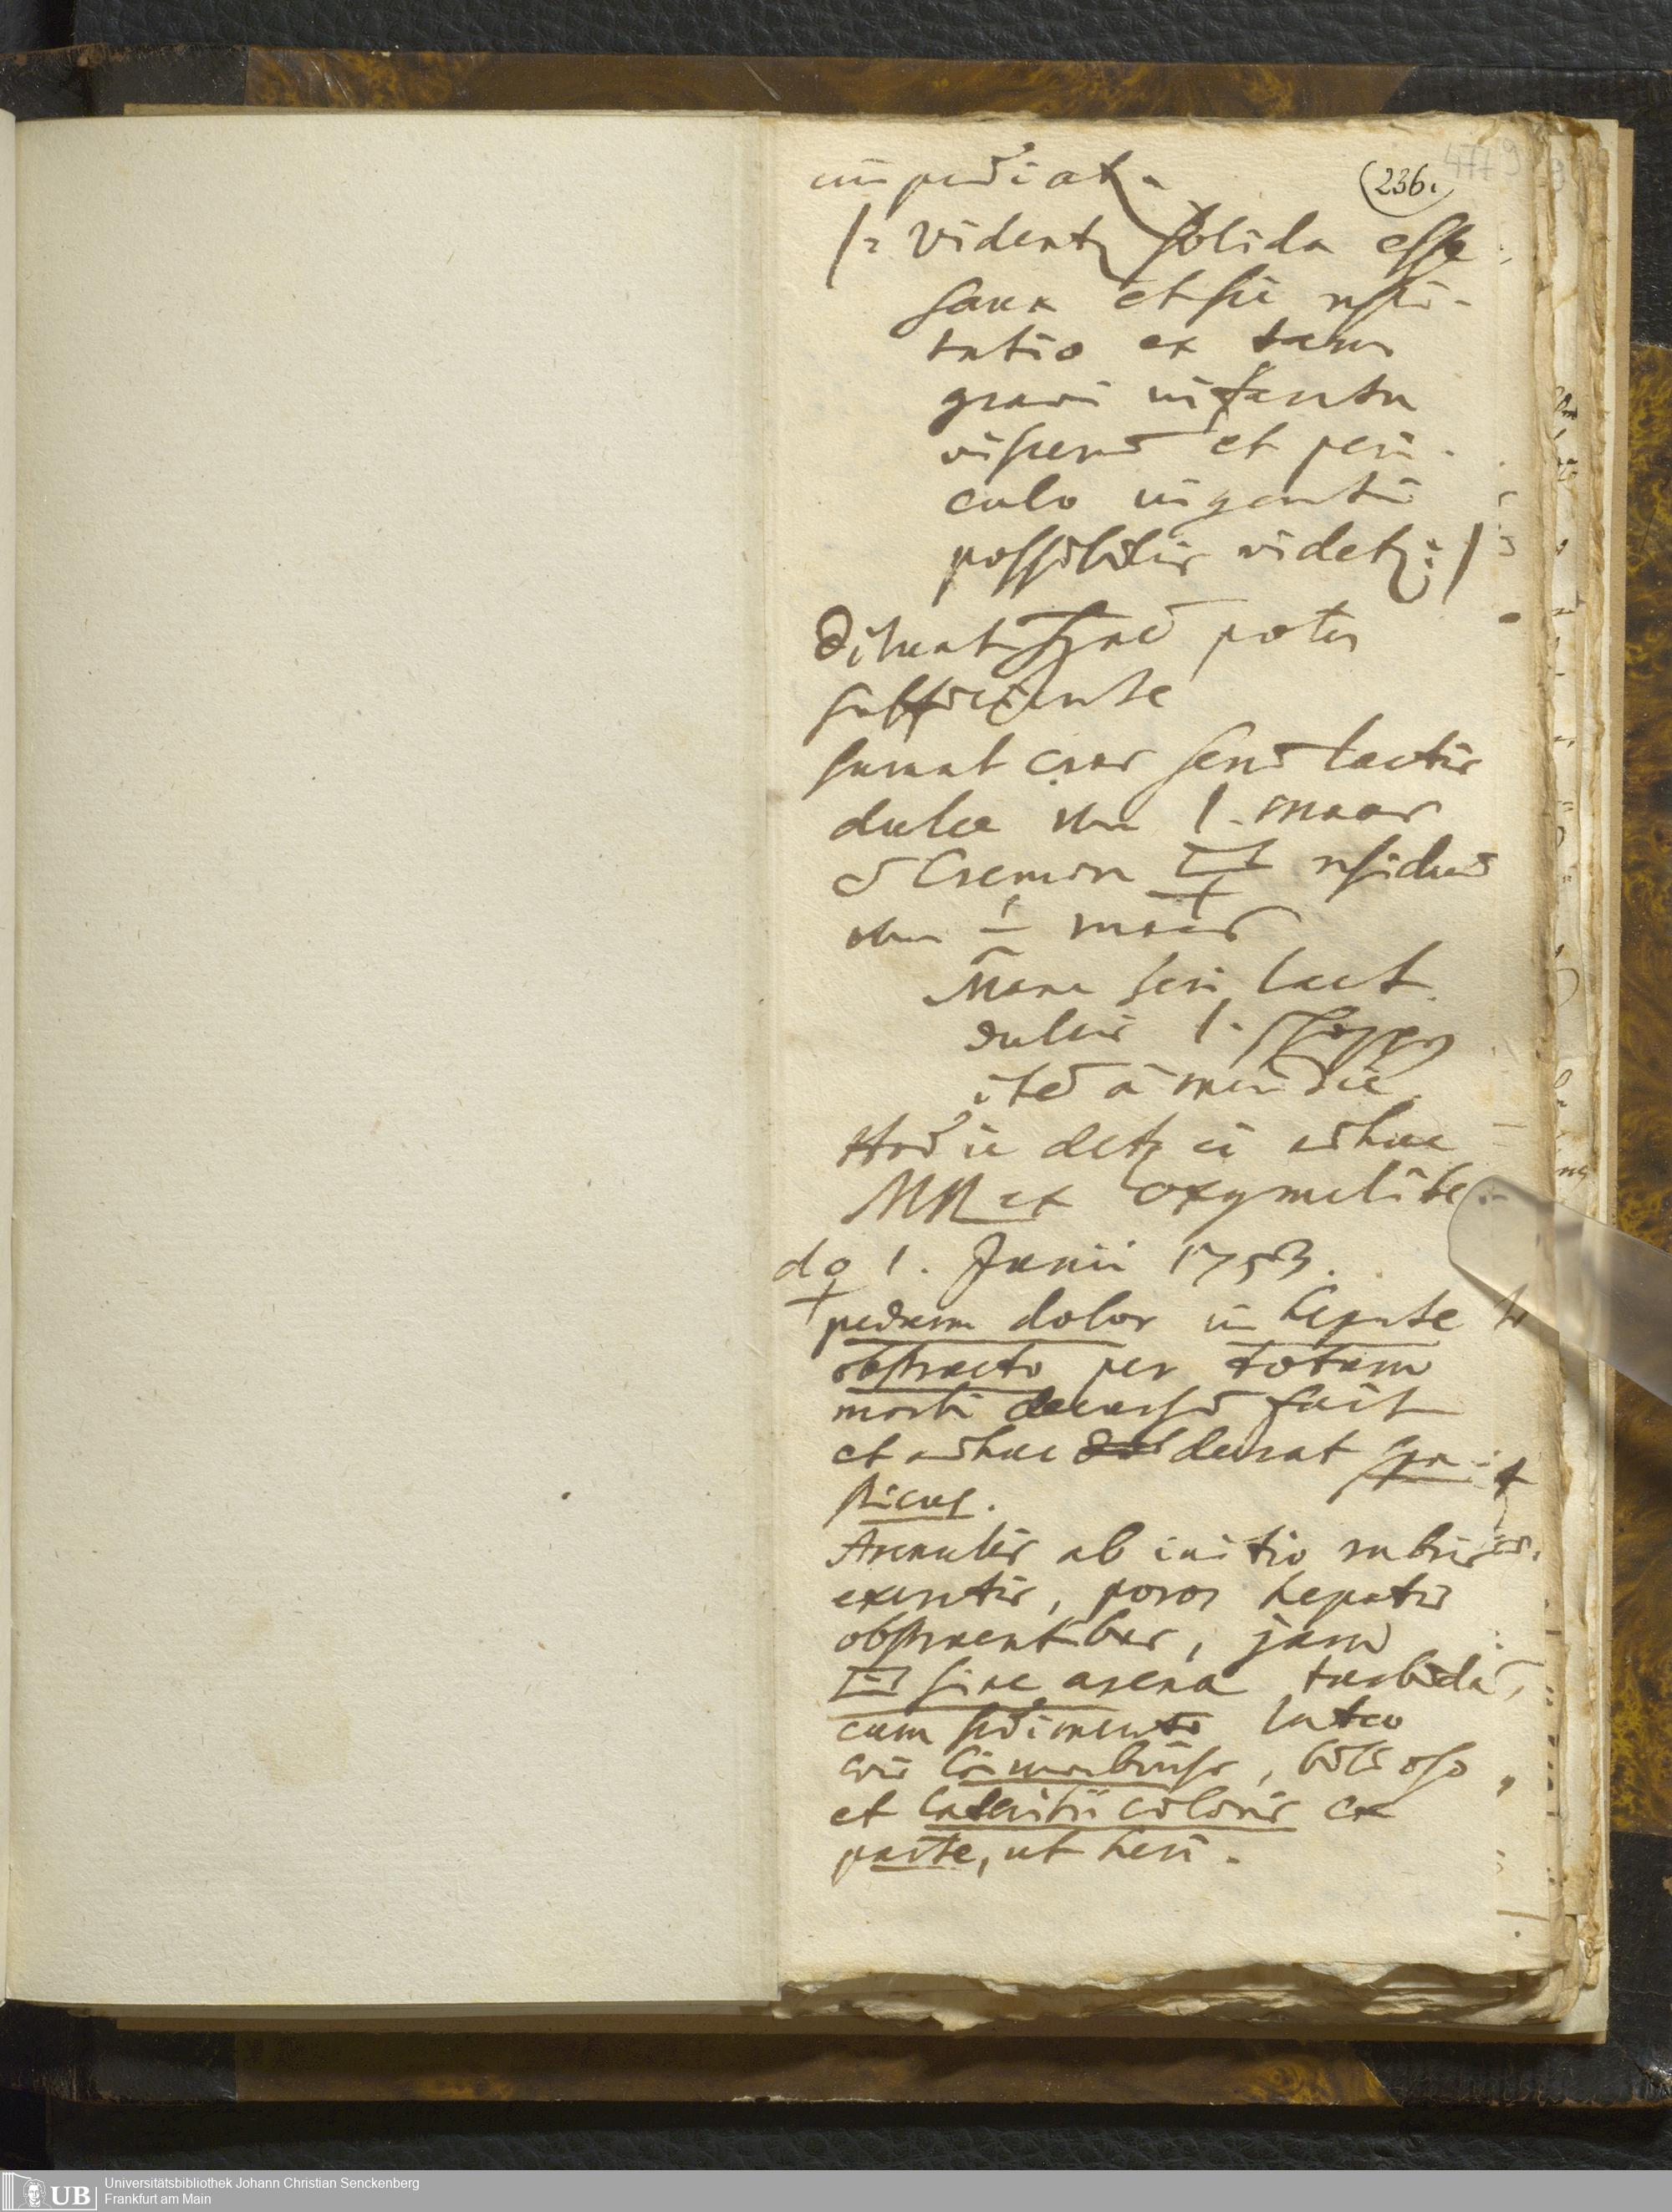 (236.
4779
impediat.
|: videntur solida esse
sana et sic resti-
tutio ex tam
gravi infarctu
viscerum et peri-
culo ingenti
possibilis videtur :|
Diluat potu
sufficiente
sumat cras seri lactis
dulce 1. maas
Cremore residuum
maas
Mane seri lact.
dulcis 1. schoppen
item a meridie.
Hodie detur ei adhuc
ex oxymelite.
d♀ 1. Junii 1753.
pedum dolor in hepate
obstructo per totum
morbi decursum fuit
et adhuc durat spa-
sticus.
Arenulis ab initio rubris
exeuntis, poros hepatis
obstruentibus, jam
sine arena turbida,
cum sedimento luteo
et lateritii coloris ex
parte, ut heri.
Universitätsbibliothek Johann Christian Senckenberg
Frankfurt am Main
UB